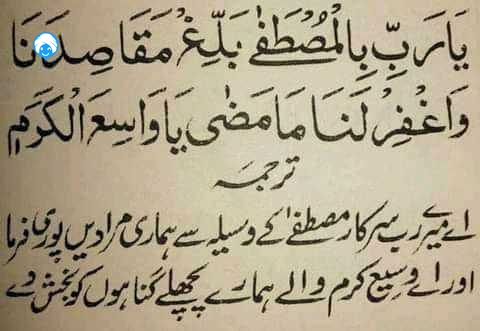 يَا رَبِّ بِالْمُصْطَفٰى بَلِّغْ مَقَاصِدَنَا
وَاغْفِرْ لَنَا مَا مَضٰى يَا وَاسِعَ الْكَرَمِ
ترجمہ
اے میرے رب سرکار مصطفےٰ کے وسیلہ سے ہماری مرادیں پوری فرما
اور اے وسیع کرم والے ہمارے پچھلے گناہوں کو بخش دے